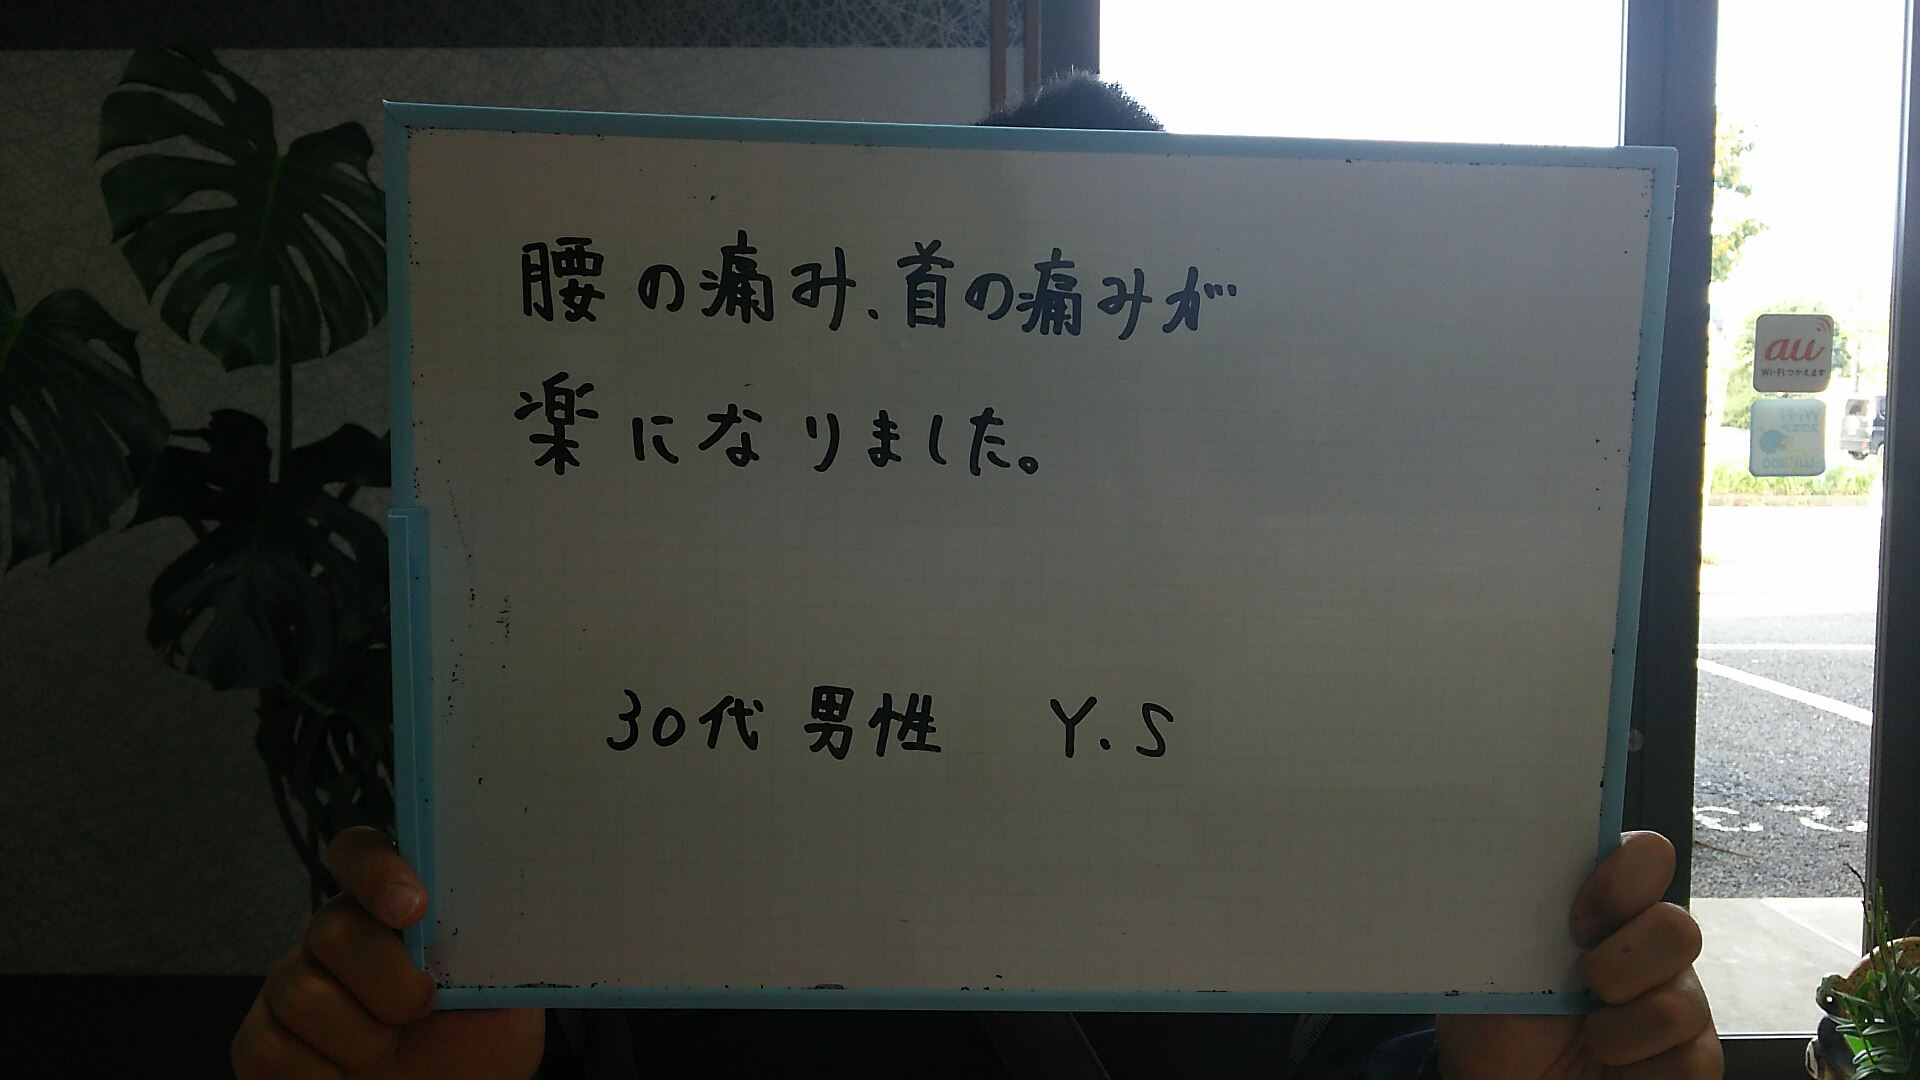 腰の痛み、首の痛みが
楽になりました。
30代 男性 Y.S
au
Wi-Fiつかえます